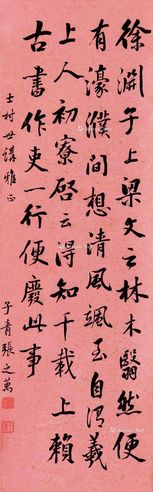 徐渊子上梁文云林木翳然便
有濠濮間想清風颯至自謂羲
上人初寮啓云得知千載上賴
古書作吏一行便廢此事
士村世講雅正
子青張之萬